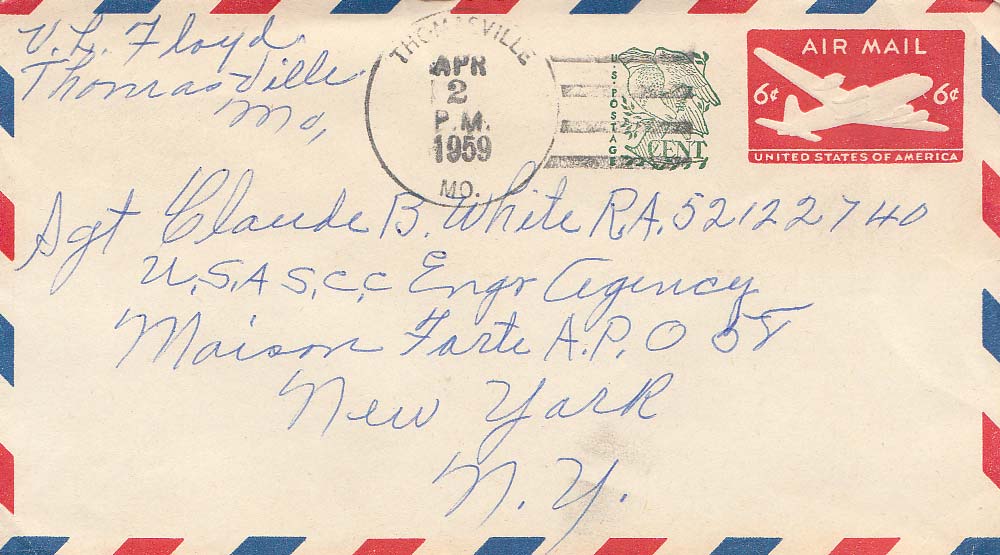 V. L. Floyd
Thomasville
Mo,
THOMASVILLE
APR
2
P.M.
1959
MO.
U.S. POSTAGE
CENT
AIR MAIL
6¢ 6¢
UNITED STATES OF AMERICA
Sgt Claude B. White R.A. 52122740
U.S.A S.C.C Engr Agency
Maison Farte A.P.O 58
New York
N. Y.